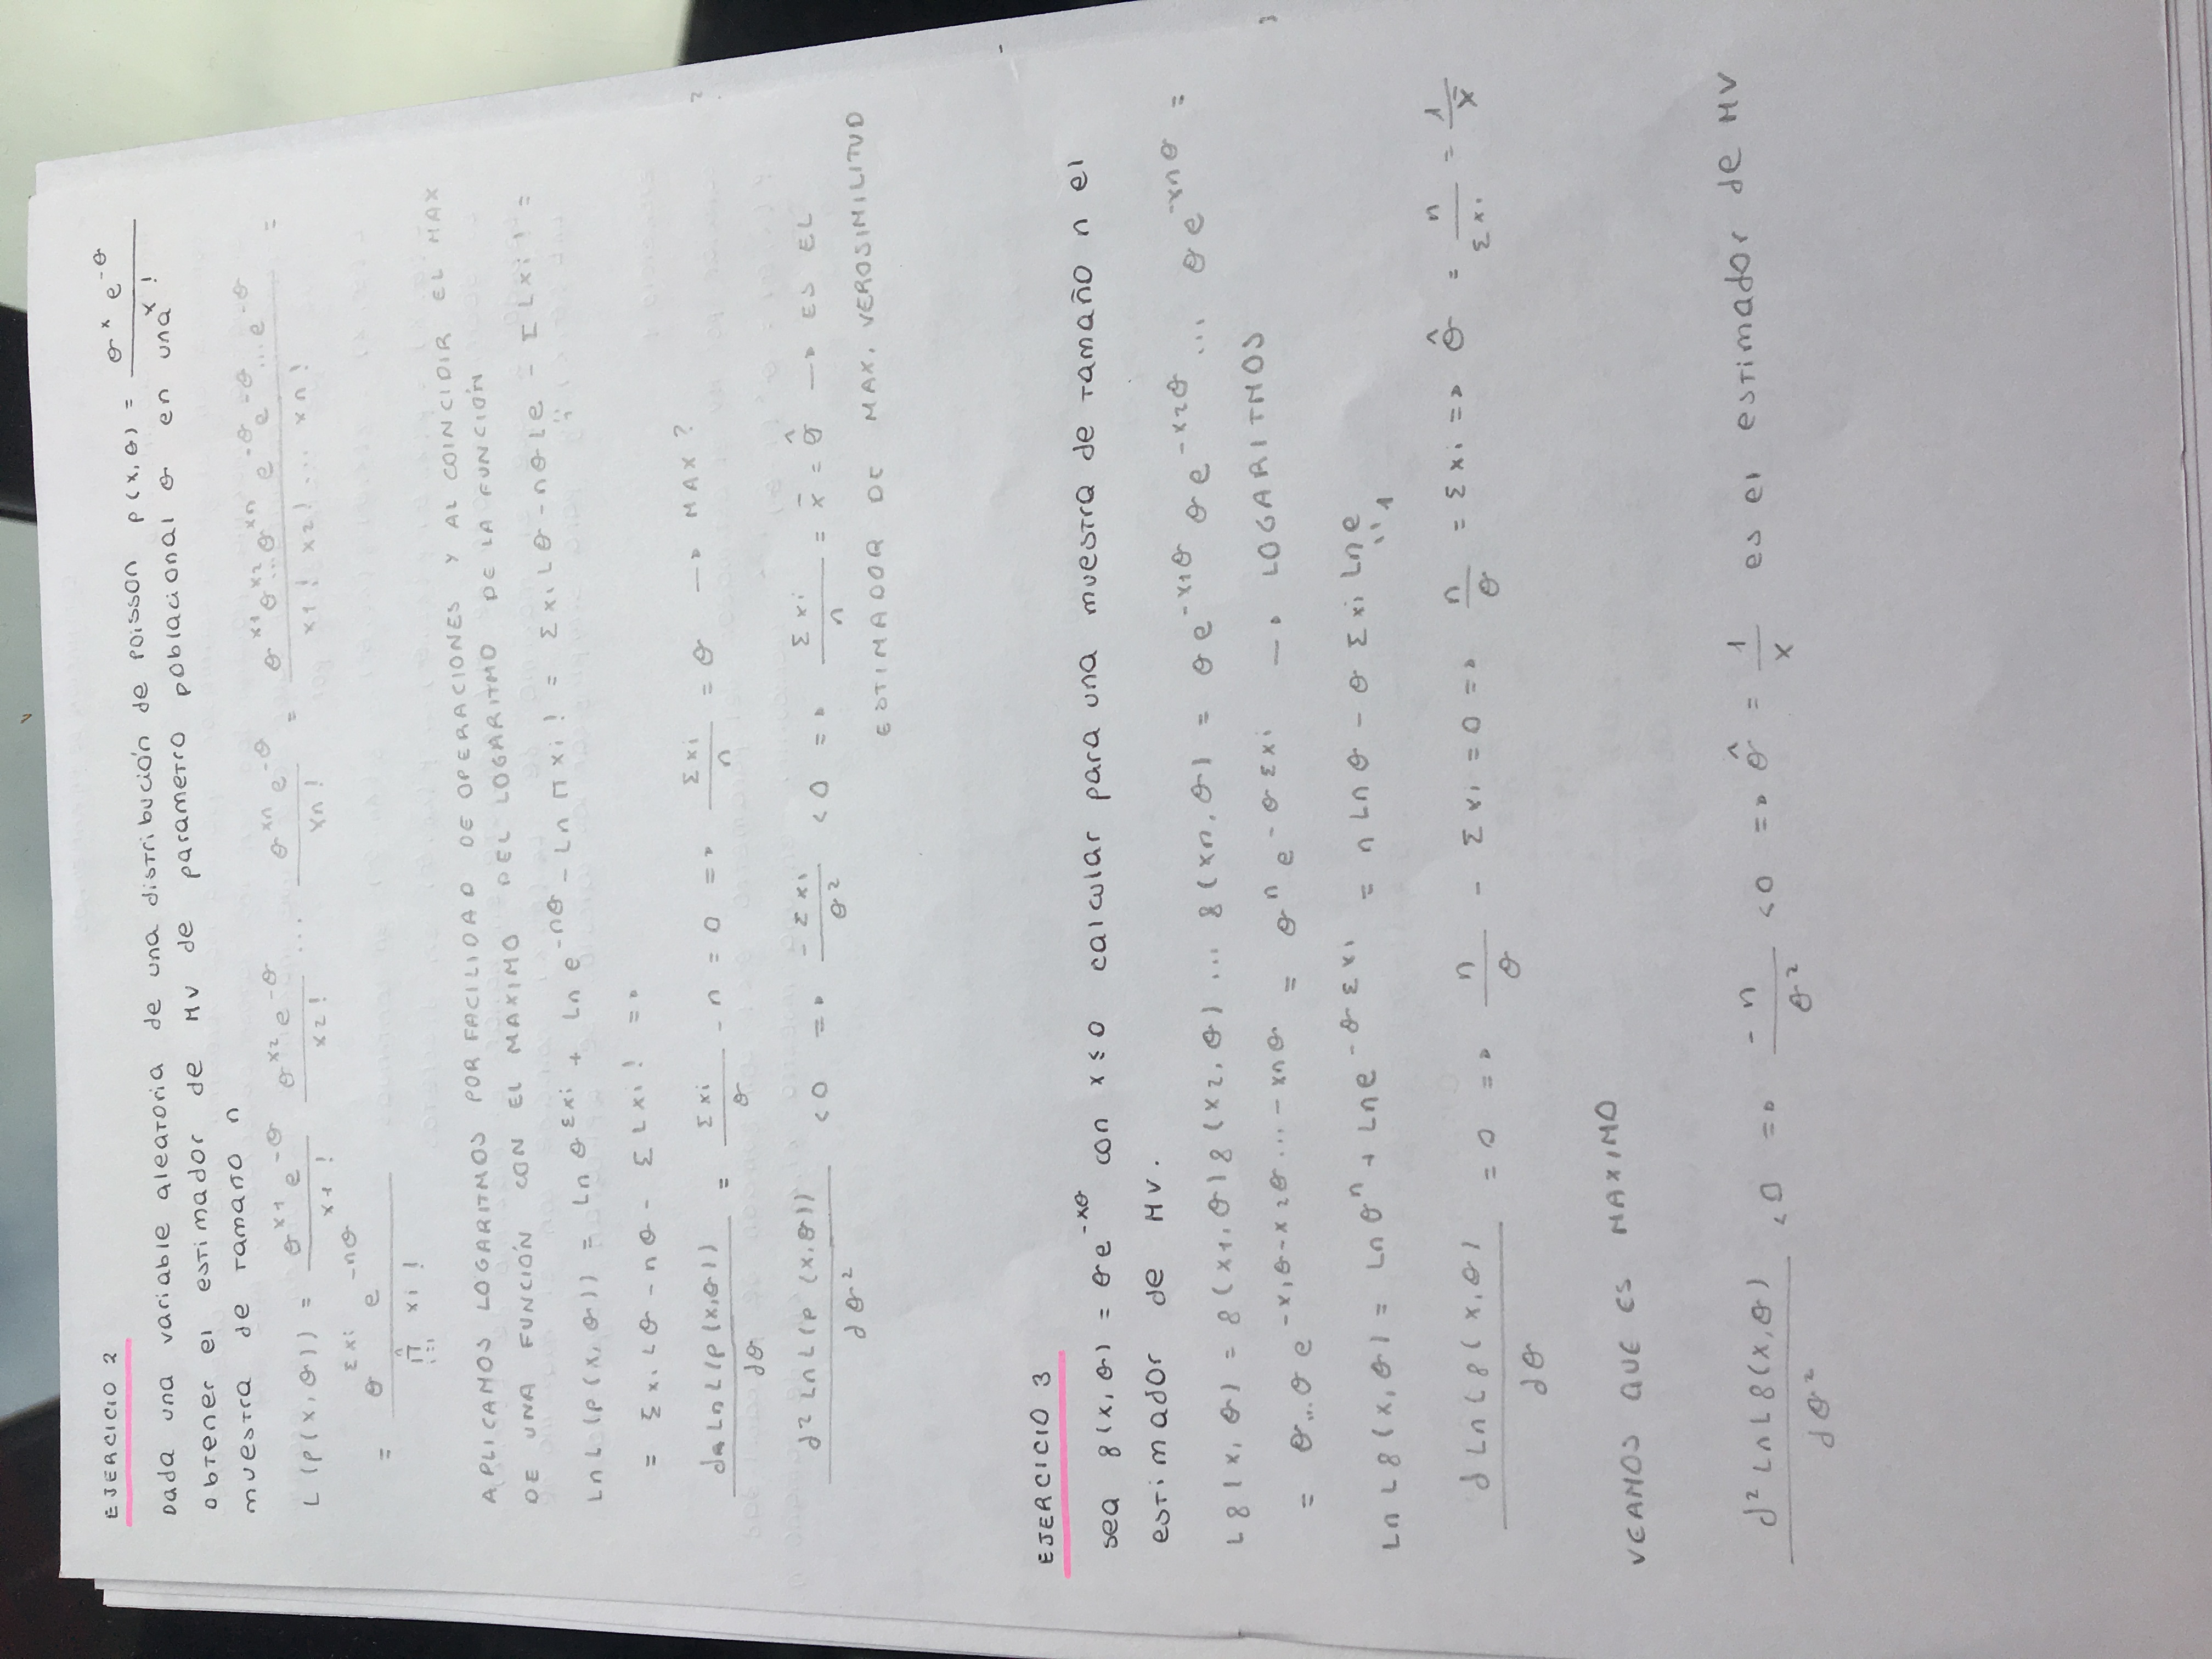 EJERCICIO 2
Dada una variable aleatoria de una distribución de Poisson P(x,θ) = θ^x e^-θ / x!
obtener el estimador de MV de parametro poblacional θ en una
muestra de tamaño n
L(P(x,θ)) = θ^x1 e^-θ / x1! θ^x2 e^-θ / x2! ... θ^xn e^-θ / xn! = θ^x1 θ^x2 ... θ^xn e^-θ e^-θ ... e^-θ / x1! x2! ... xn! =
= θ^Σxi e^-nθ / Π_{i=1}^n xi!
APLICAMOS LOGARITMOS POR FACILIDAD DE OPERACIONES Y AL COINCIDIR EL MAX
DE UNA FUNCIÓN CON EL MAXIMO DEL LOGARITMO DE LA FUNCIÓN
Ln L(P(x,θ)) = Ln θ^Σxi + Ln e^-nθ - Ln Π xi! = Σxi Lθ - nθ Le - Σ L xi! =
= Σxi Lθ - nθ - Σ L xi! =>
d Ln L(P(x,θ)) / dθ = Σxi / θ - n = 0 => Σxi / n = θ -> MAX?
d² Ln L(P(x,θ)) / dθ² < 0 => -Σxi / θ² < 0 => Σxi / n = x̄ = θ̂ -> ES EL
ESTIMADOR DE MAX. VEROSIMILITUD
EJERCICIO 3
sea f(x,θ) = θe^-xθ con x ≤ 0 calcular para una muestra de tamaño n el
estimador de MV.
L f(x,θ) = f(x1,θ) f(x2,θ) ... f(xn,θ) = θe^-x1θ θe^-x2θ ... θe^-xnθ =
= θ...θ e^-x1θ-x2θ...-xnθ = θ^n e^-θΣxi -> LOGARITMOS
Ln L f(x,θ) = Ln θ^n + Ln e^-θΣxi = n Ln θ - θ Σxi Ln e
1
d Ln L f(x,θ) / dθ = 0 => n / θ - Σxi = 0 => n / θ = Σxi => θ̂ = n / Σxi = 1 / x̄
VEAMOS QUE ES MAXIMO
d² Ln L f(x,θ) / dθ² < 0 => -n / θ² < 0 => θ̂ = 1 / x es el estimador de MV